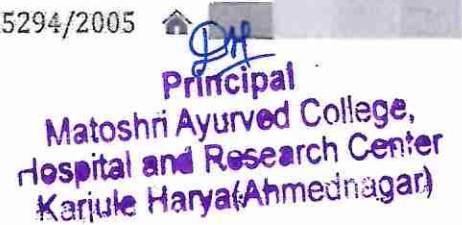 5294/2005
Principal
Matoshri Ayurved College,
Hospital and Research Center
Karjule Harya(Ahmednagar)